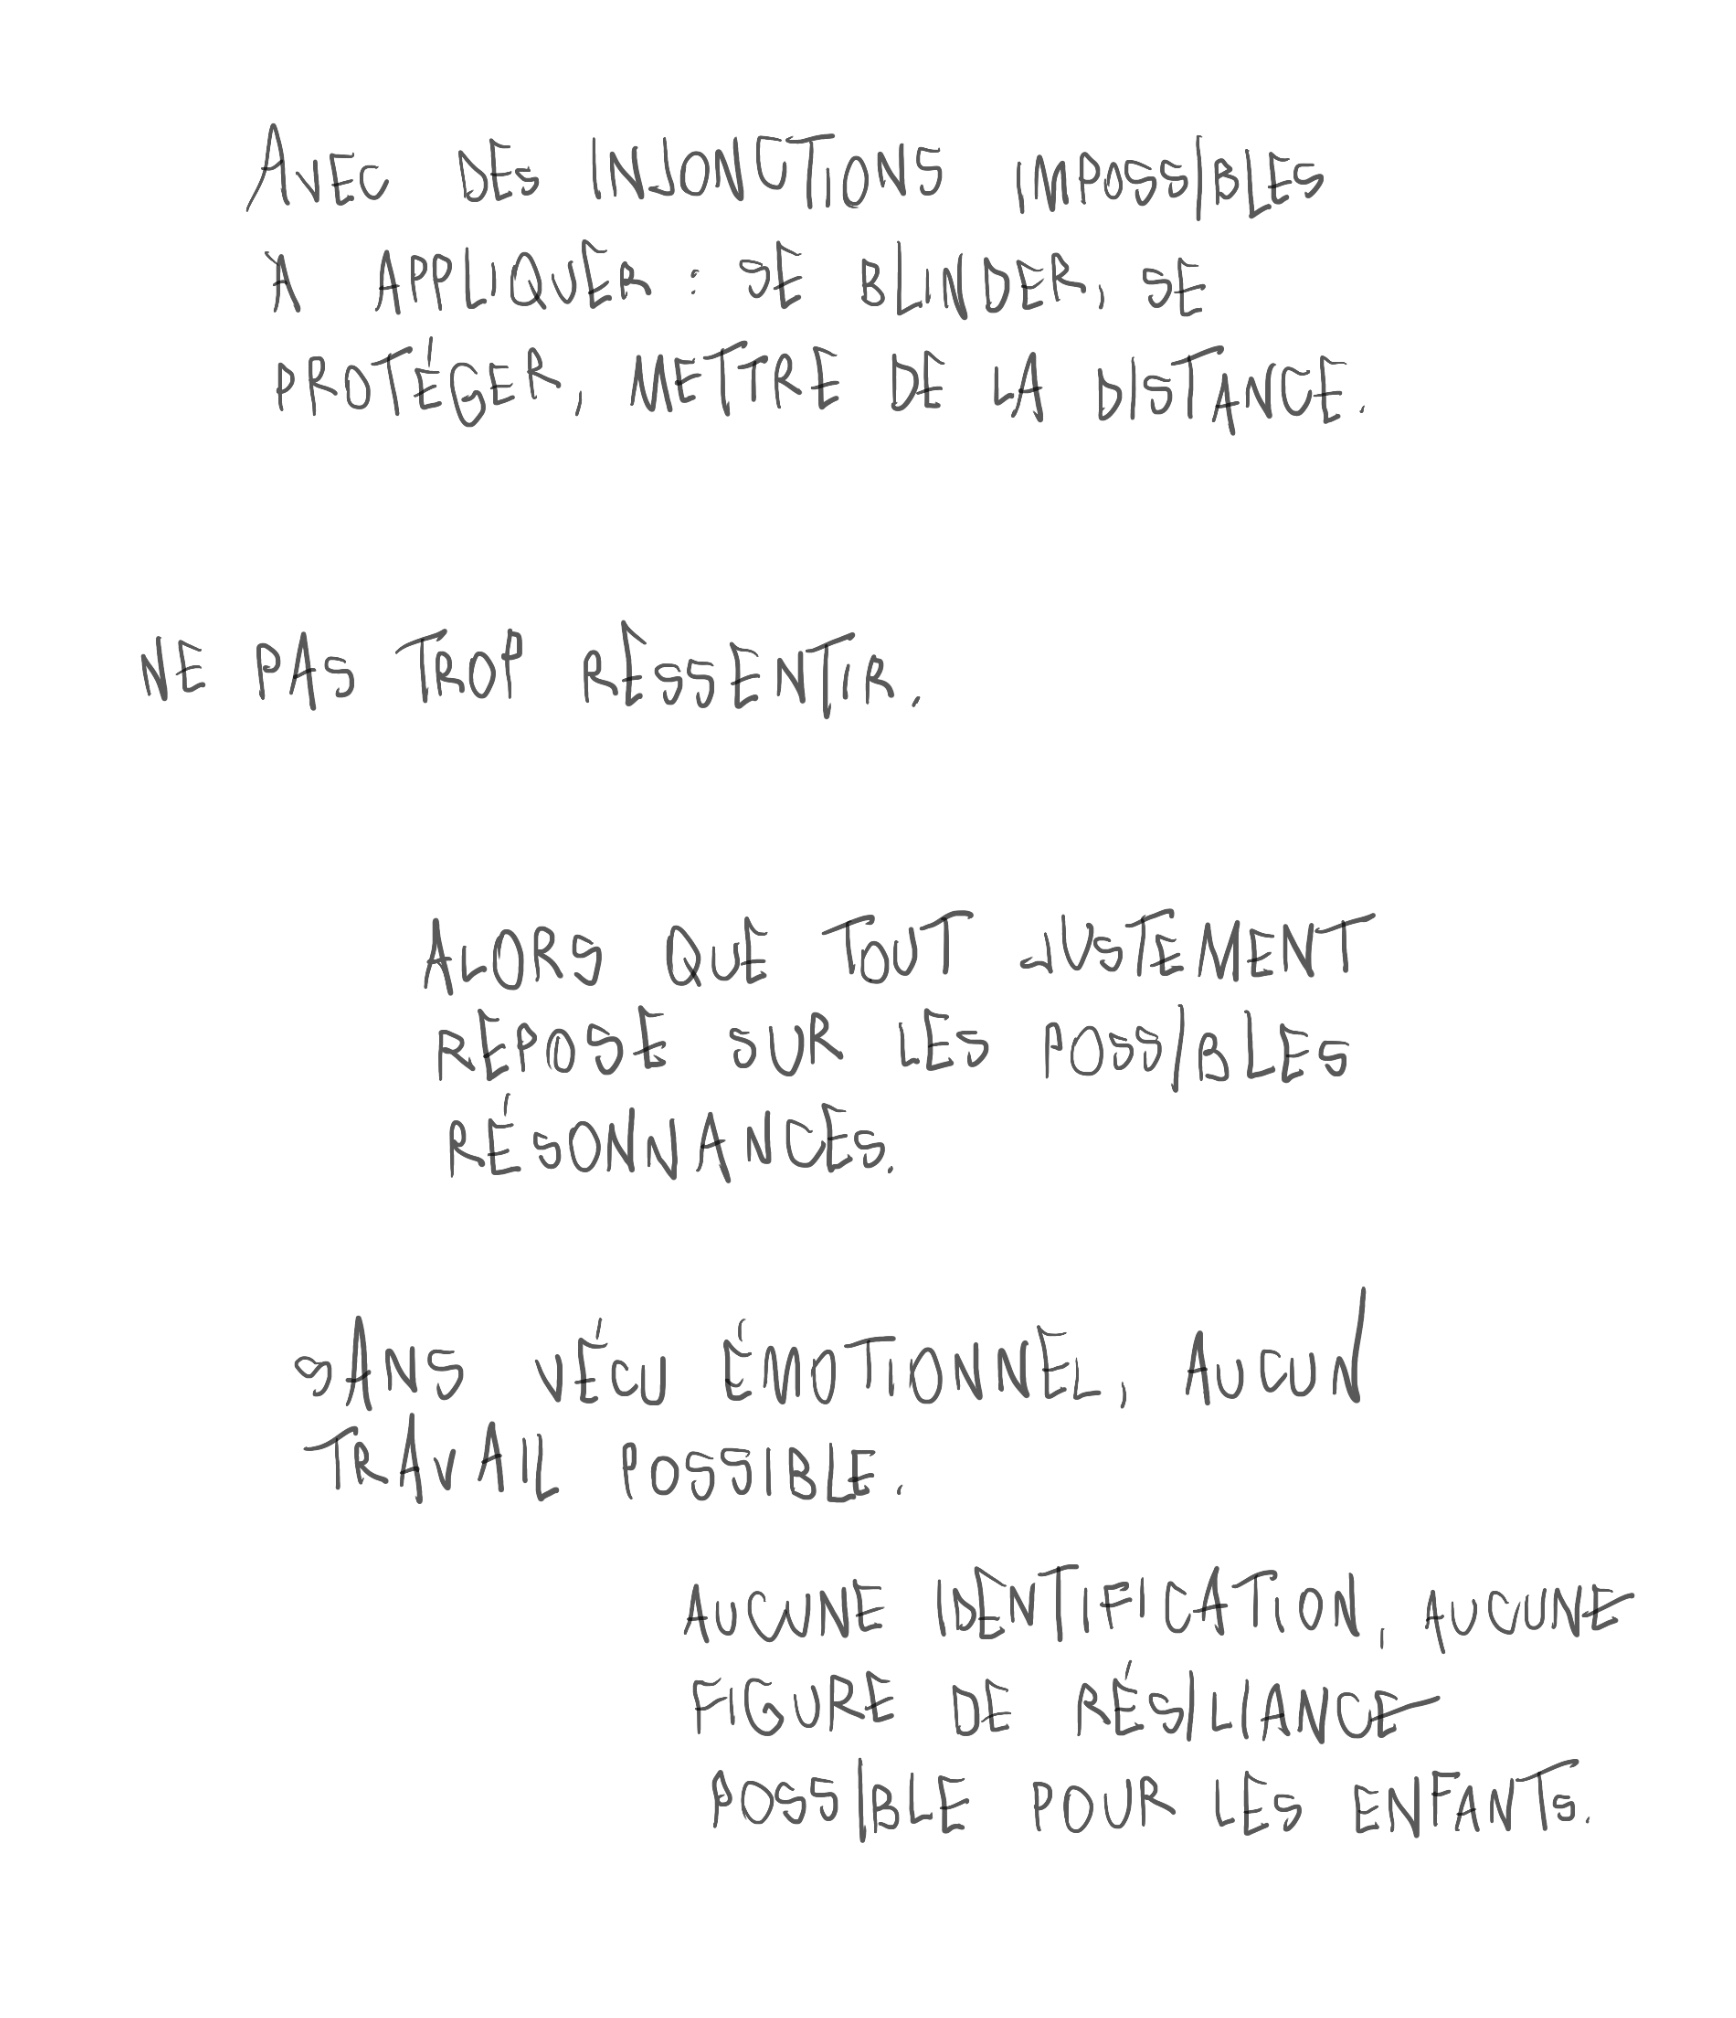 AVEC DES INJONCTIONS IMPOSSIBLES
À APPLIQUER : SE BLINDER, SE
PROTÉGER, METTRE DE LA DISTANCE.
NE PAS TROP RESSENTIR.
ALORS QUE TOUT JUSTEMENT
REPOSE SUR LES POSSIBLES
RÉSONNANCES.
SANS VÉCU ÉMOTIONNEL, AUCUN
TRAVAIL POSSIBLE.
AUCUNE IDENTIFICATION, AUCUNE
FIGURE DE RÉSILIANCE
POSSIBLE POUR LES ENFANTS.